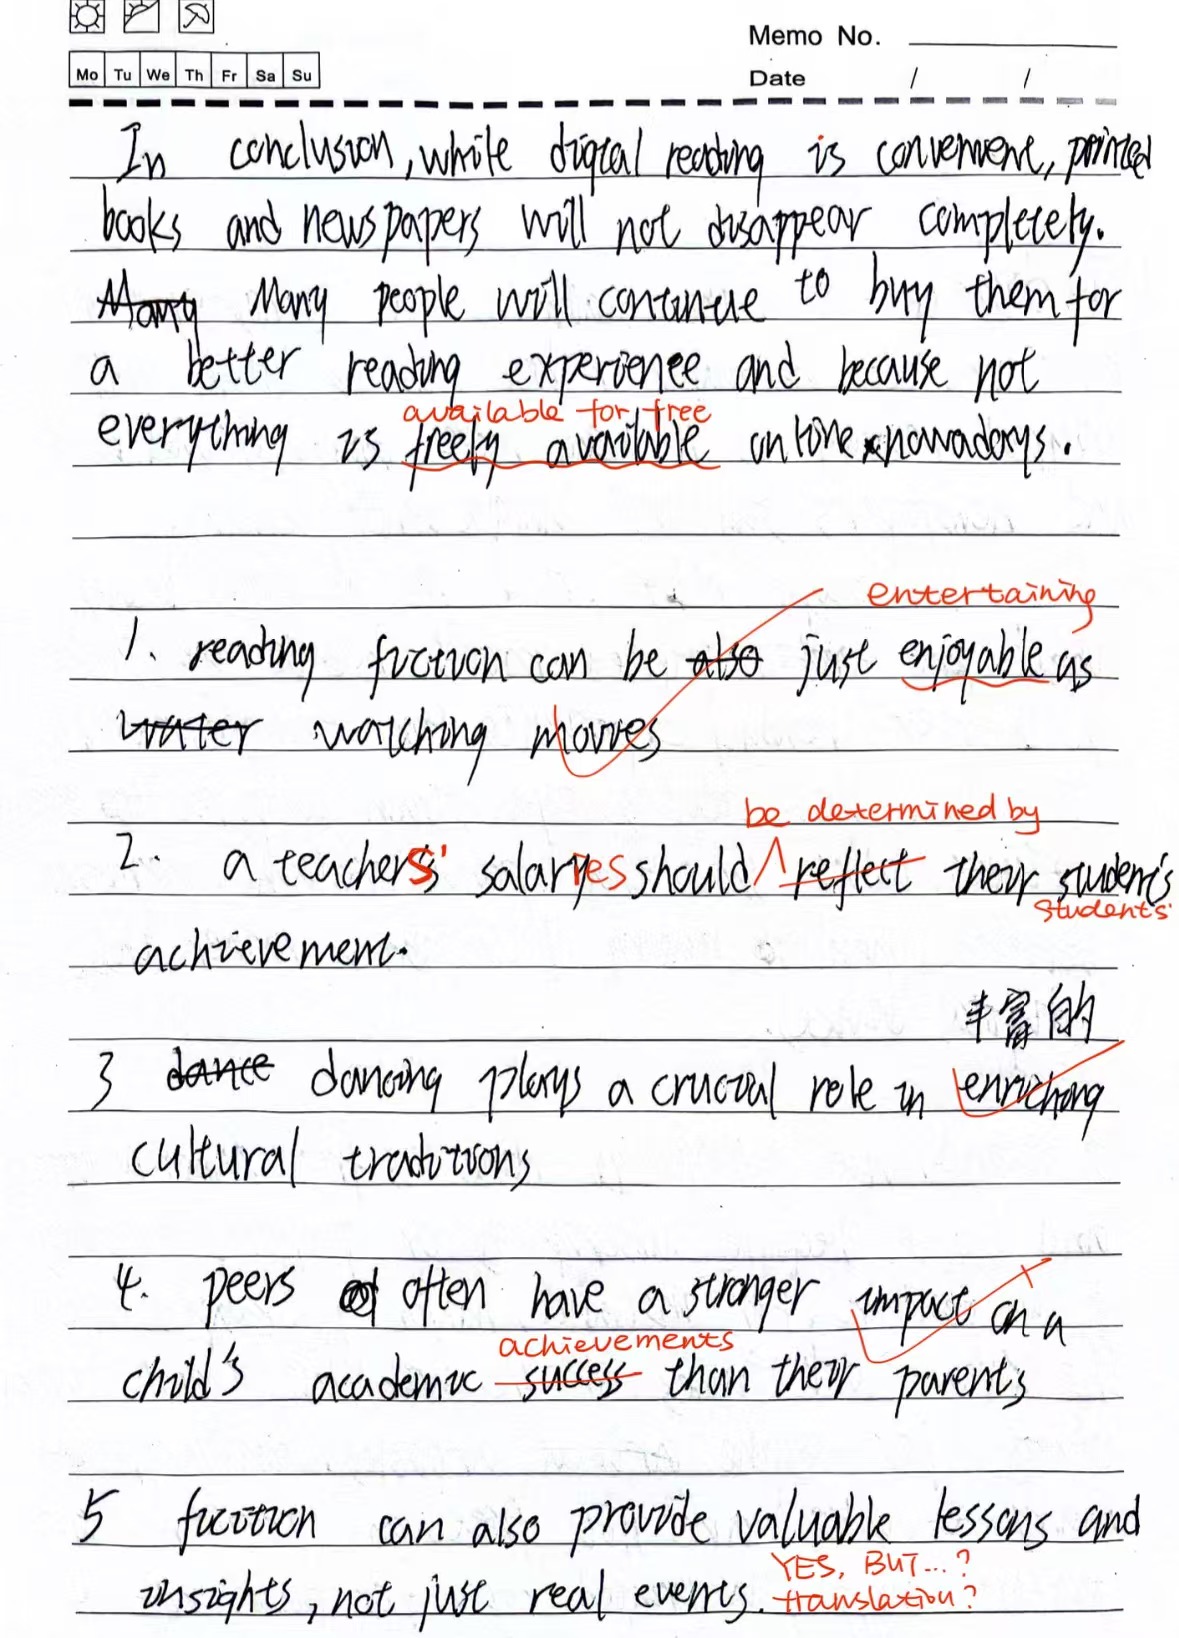 Memo No.
Mo Tu We Th Fr Sa Su
Date / /
In conclusion, while digital reading is convenient, printed
books and newspapers will not disappear completely.
Many Many people will continue to buy them for
a better reading experience and because not
available for free
everything is freely available online nowadays.
entertaining
1. reading fiction can be also just enjoyable as
water watching movies
be determined by
2. a teachers' salaries should reflect their student's
students'
achievement.
丰富的
3 dance dancing plays a crucial role in enriching
cultural traditions
4. peers often have a stronger impact on a
achievements
child's academic success than their parents
5 fiction can also provide valuable lessons and
YES, BUT...?
insights, not just real events. translation?